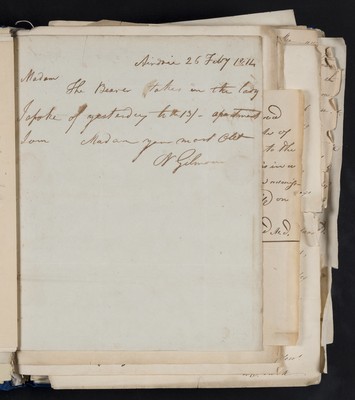 Airdrie 26 Feby 1814
Madam
The Bearer takes in the lady
I spoke of yesterday to the 13/- apartment
I am Madam your most Obt
W Gilmour
to the
on